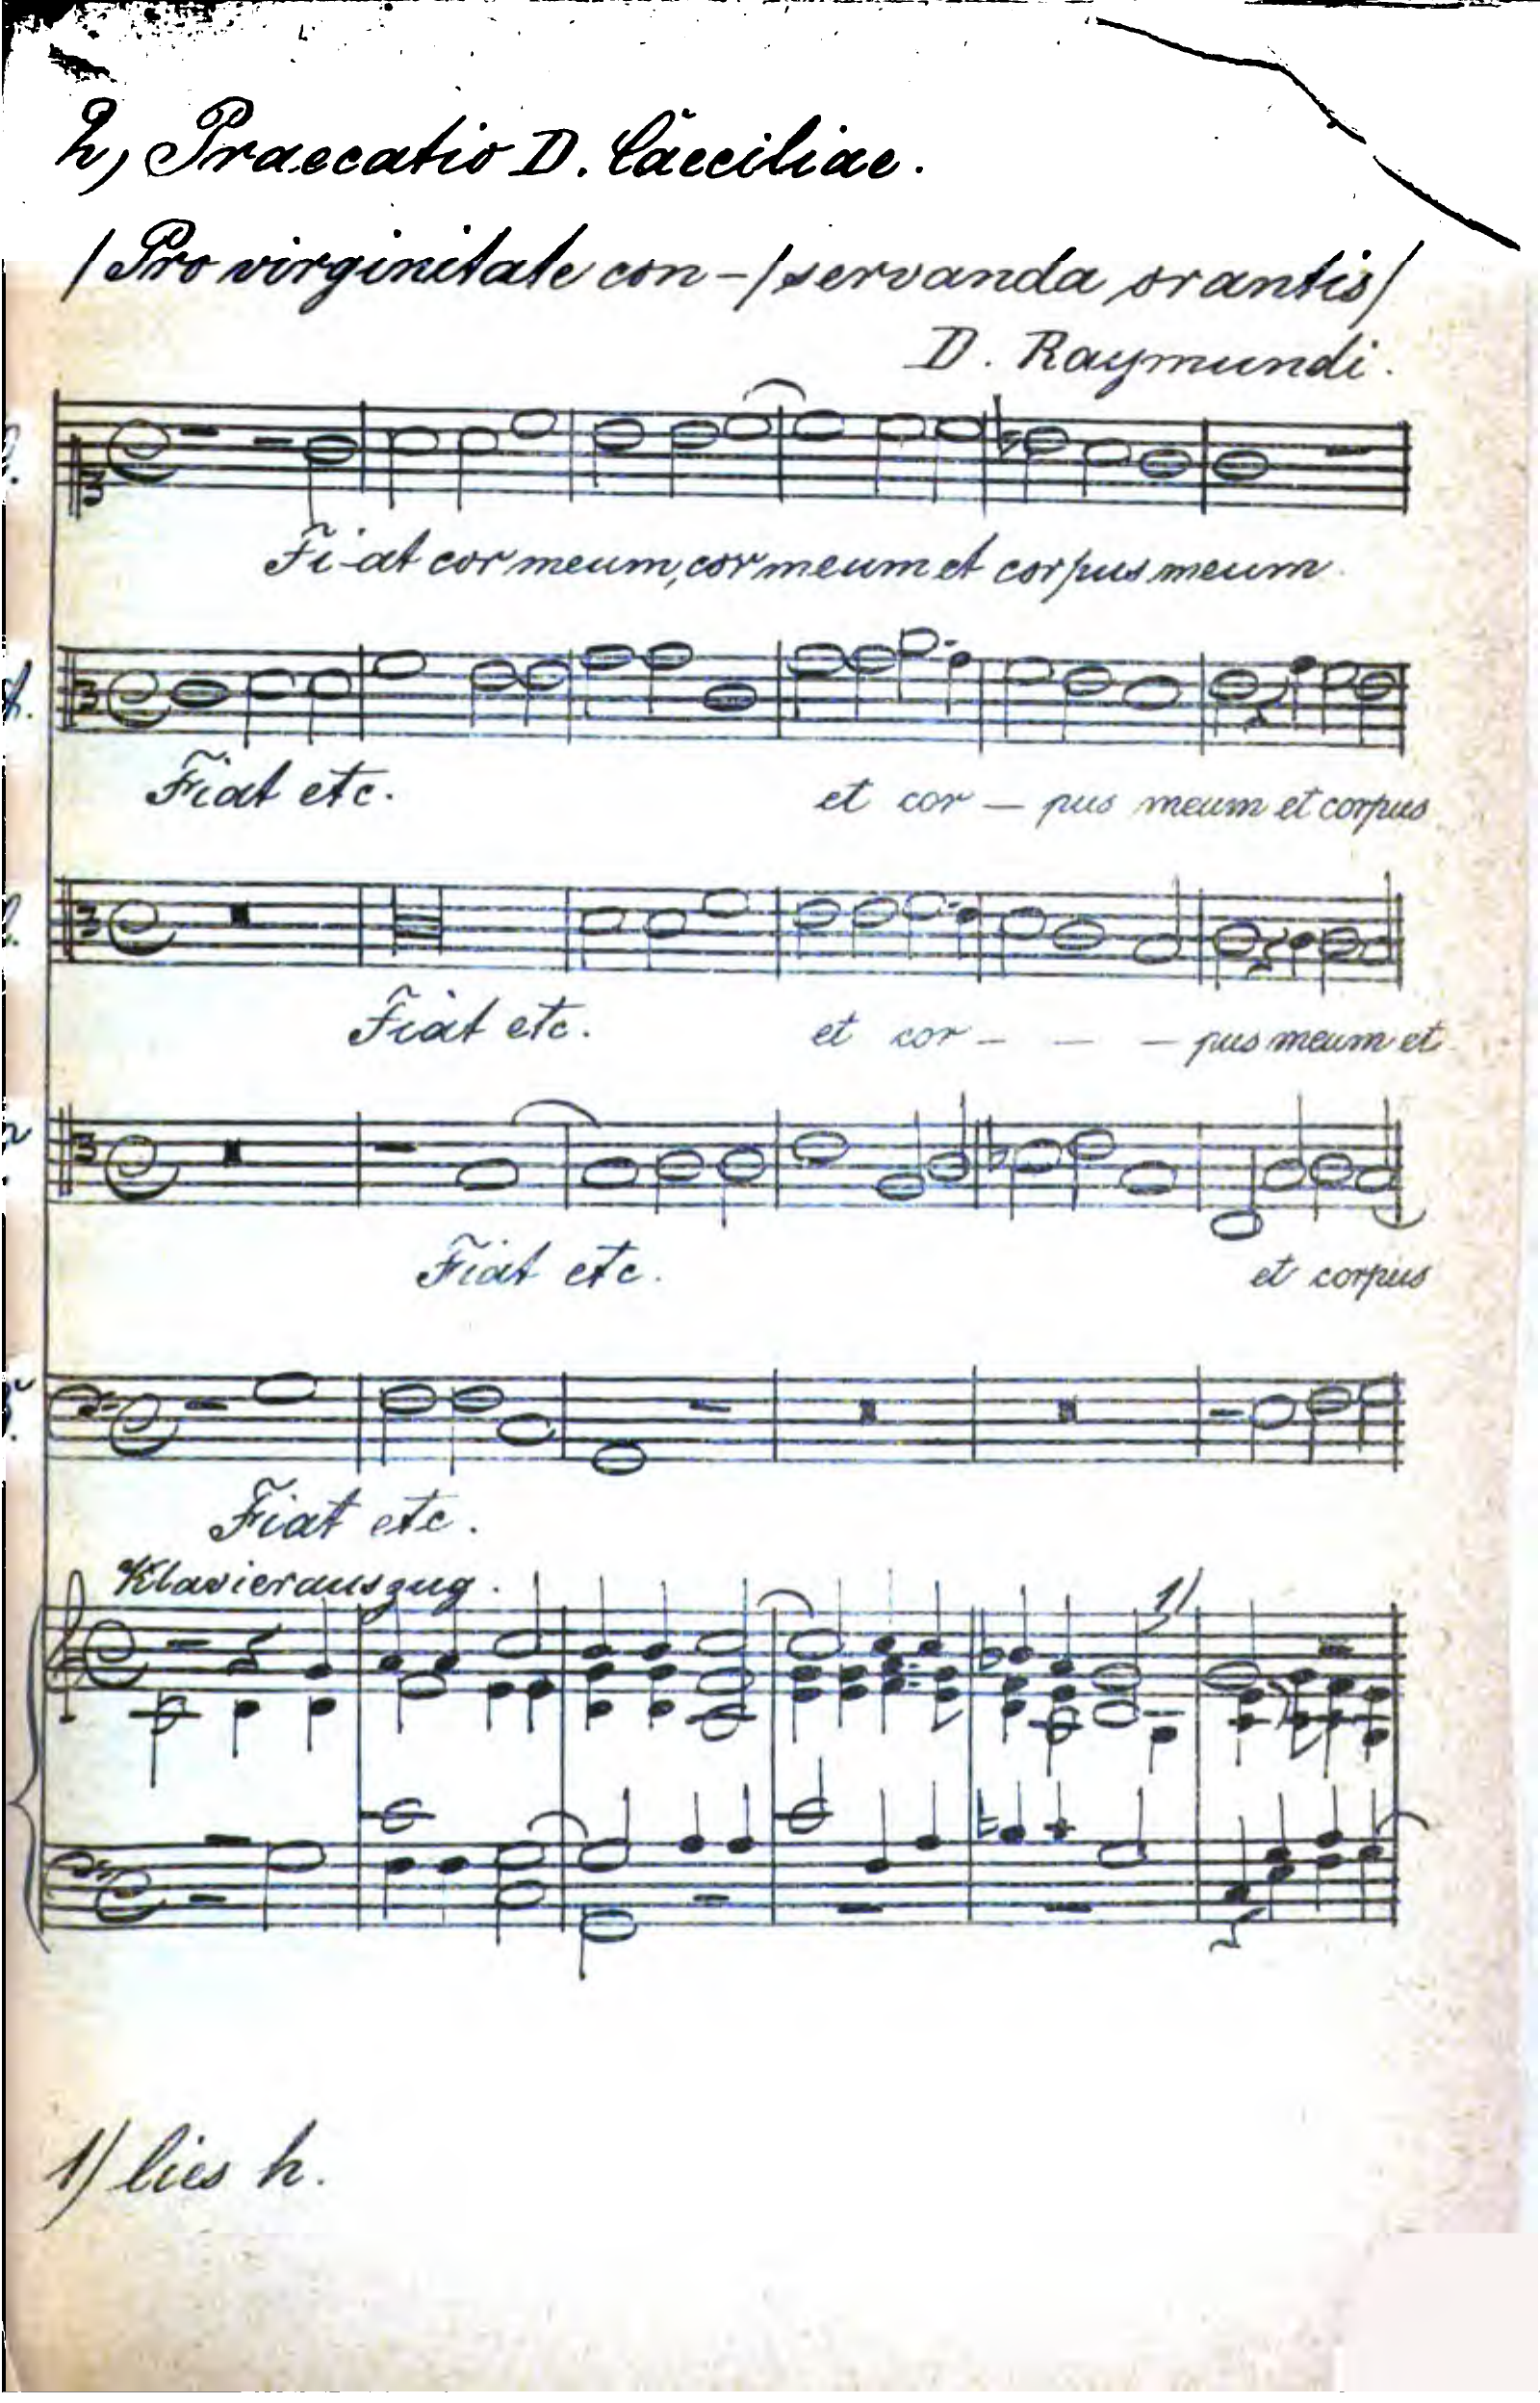 2, Praecatio D. Caeciliae.
/Pro virginitate con-/servanda orantis/
D. Raymundi.
Fi-at cor meum, cor meum et corpus meum.
A.
Fiat etc. et cor — pus meum et corpus
Fiat etc. et cor - - - pus meum et
Fiat etc. et corpus
Fiat etc.
Klavierauszug.
1)
1) lies h.